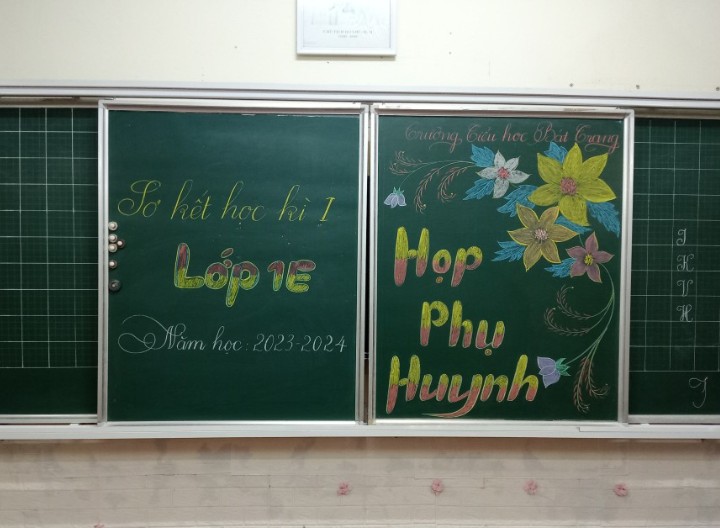 Sơ kết học kì I
Lớp 1E
Năm học: 2023-2024
Trường Tiểu học Bát Tràng
Họp
Phụ
Huynh
I
K
V
H